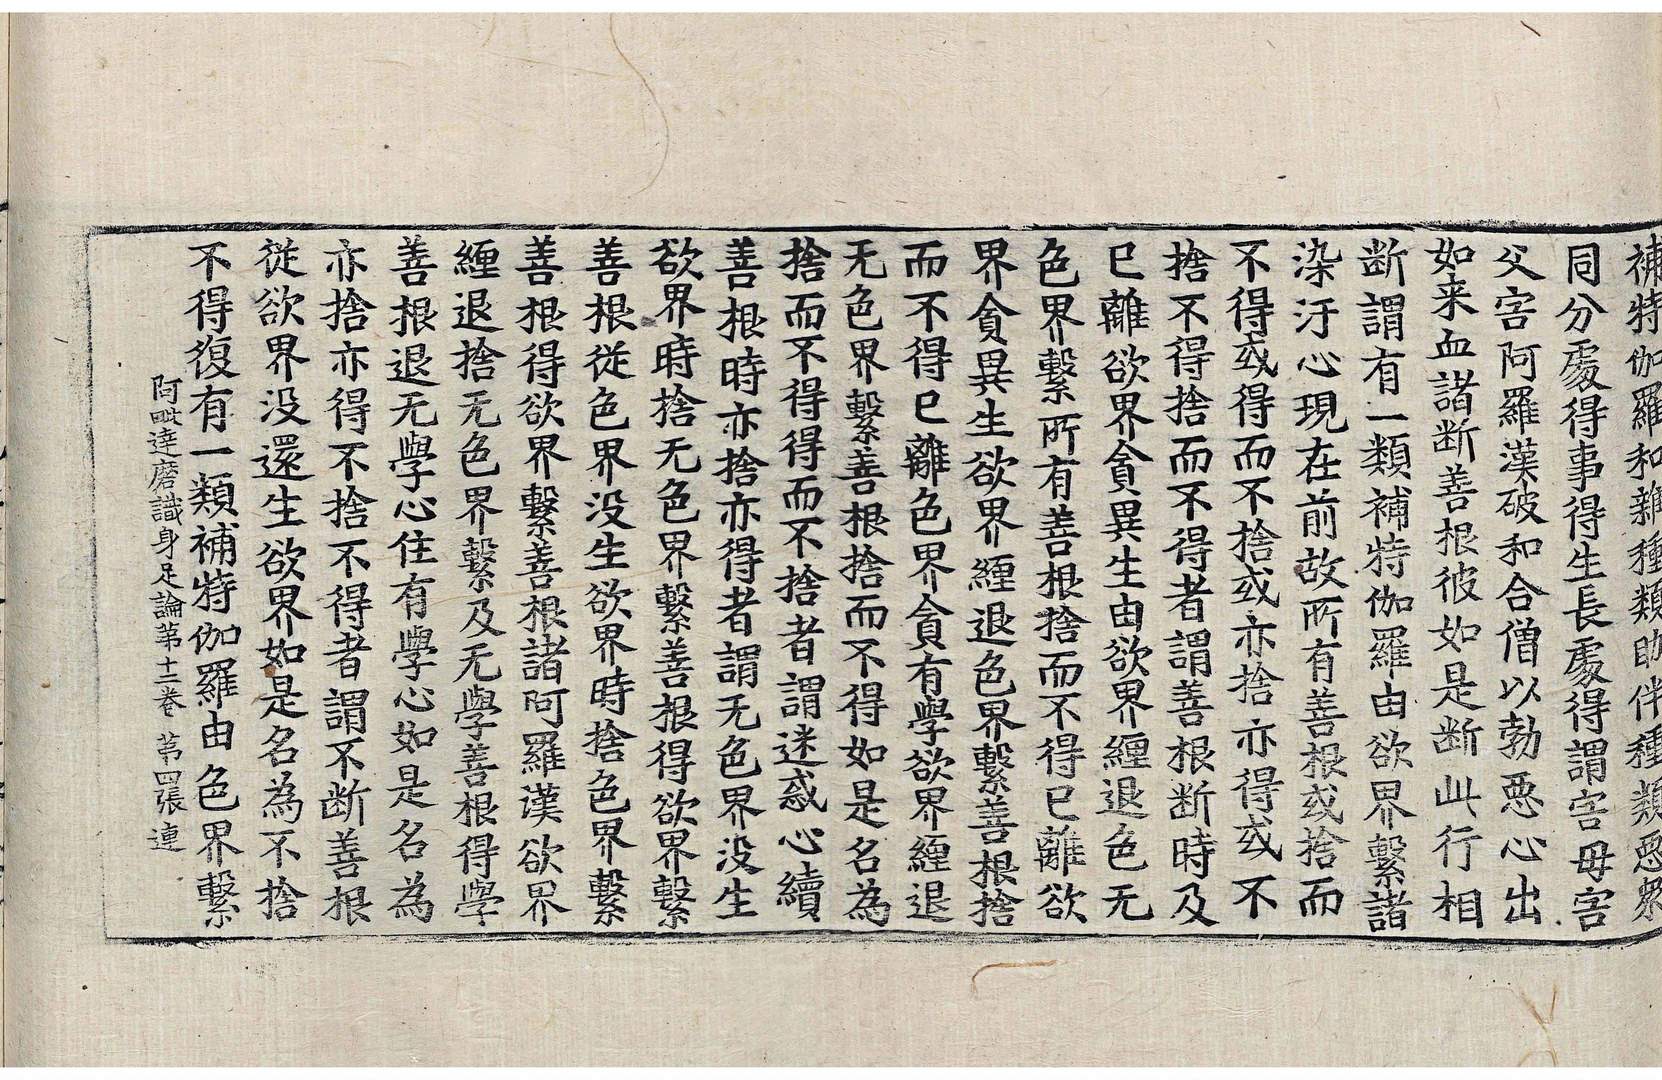 補特伽羅和雜種類助伴種類惡眾
同分處得事得生長處得謂害母害
父害阿羅漢破和合僧以勃惡心出
如来血諸断善根彼如是断此行相
断謂有一類補特伽羅由欲界繫諸
染汙心現在前故所有善根或捨而
不得或得而不捨或亦捨亦得或不
捨不得捨而不得者謂善根断時及
已離欲界貪異生由欲界纏退色无
色界繫所有善根捨而不得已離欲
界貪異生欲界纏退色界繫善根捨
而不得已離色界貪有學欲界纏退
无色界繫善根捨而不得如是名為
捨而不得得而不捨者謂迷惑心續
善根時亦捨亦得者謂无色界没生
欲界時捨无色界繫善根得欲界繫
善根従色界没生欲界時捨色界繫
善根得欲界繫善根諸阿羅漢欲界
纏退捨无色界繫及无學善根得學
善根退无學心住有學心如是名為
亦捨亦得不捨不得者謂不断善根
従欲界没還生欲界如是名為不捨
不得復有一類補特伽羅由色界繫
阿毗達磨識身足論第十二卷　第四張　連